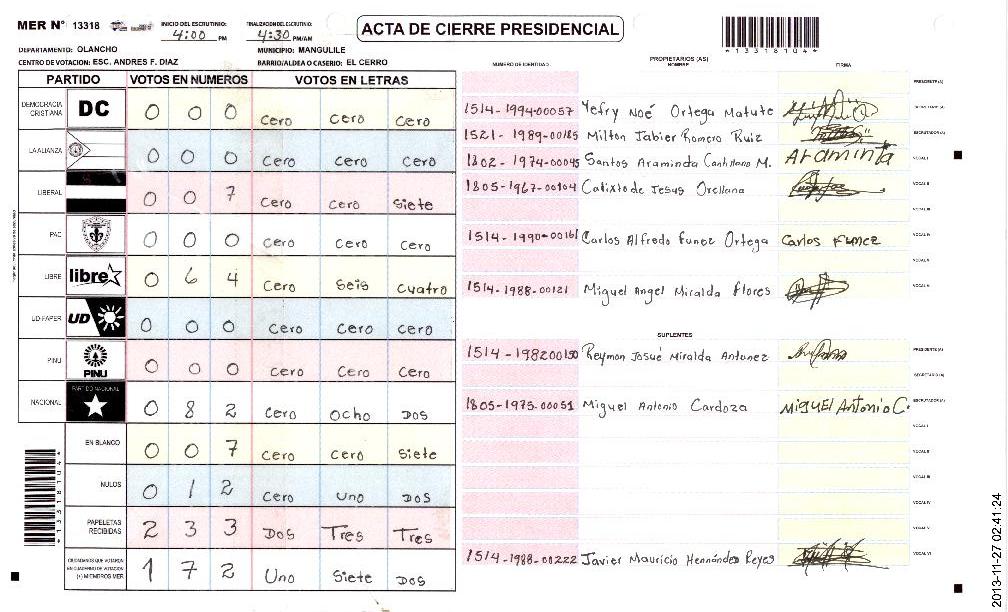 MER N° 13318 INICIO DEL ESCRUTINIO: 4:00 PM FINALIZACION DEL ESCRUTINIO: 4:30 PM/AM
ACTA DE CIERRE PRESIDENCIAL
*133181041*
DEPARTAMENTO: OLANCHO MUNICIPIO: MANGULILE
CENTRO DE VOTACION: ESC. ANDRES F. DIAZ BARRIO/ALDEA O CASERIO: EL CERRO
PARTIDO VOTOS EN NUMEROS VOTOS EN LETRAS
DEMOCRACIA CRISTIANA DC 0 0 0 Cero Cero Cero
LA ALIANZA 0 0 0 Cero Cero Cero
LIBERAL 0 0 7 Cero Cero Siete
PAC 0 0 0 Cero Cero Cero
LIBRE libre 0 6 4 Cero Seis Cuatro
UD-FAPER UD 0 0 0 Cero Cero Cero
PINU PINU 0 0 0 Cero Cero Cero
NACIONAL PARTIDO NACIONAL 0 8 2 Cero Ocho Dos
EN BLANCO 0 0 7 Cero Cero Siete
NULOS 0 1 2 Cero Uno Dos
PAPELETAS RECIBIDAS 2 3 3 Dos Tres Tres
CIUDADANOS QUE VOTARON EN CUADERNO DE VOTACION (+) MIEMBROS MER 1 7 2 Uno Siete Dos
NUMERO DE IDENTIDAD PROPIETARIOS (AS) NOMBRE FIRMA
PRESIDENTE (A)
1514-1994-00057 Yefry Noé Ortega Matute SECRETARIO (A)
1521-1989-00185 Milton Jabier Romero Ruiz ESCRUTADOR (A)
1802-1974-00045 Santos Araminda Cantillano M. Araminta VOCAL I
1805-1967-00104 Calixto de Jesus Orellana VOCAL II
VOCAL III
1514-1990-00161 Carlos Alfredo Funez Ortega Carlos Funez VOCAL IV
VOCAL V
1514-1988-00121 Miguel Angel Miralda Flores VOCAL VI
SUPLENTES
1514-1982-00150 Reymon Josué Miralda Antunez PRESIDENTE (A)
SECRETARIO (A)
1805-1975-00051 Miguel Antonio Cardoza Miguel Antonio C. ESCRUTADOR (A)
VOCAL I
VOCAL II
VOCAL III
VOCAL IV
VOCAL V
1514-1988-00222 Javier Mauricio Hernández Reyes VOCAL VI
2013-11-27 02:41:24